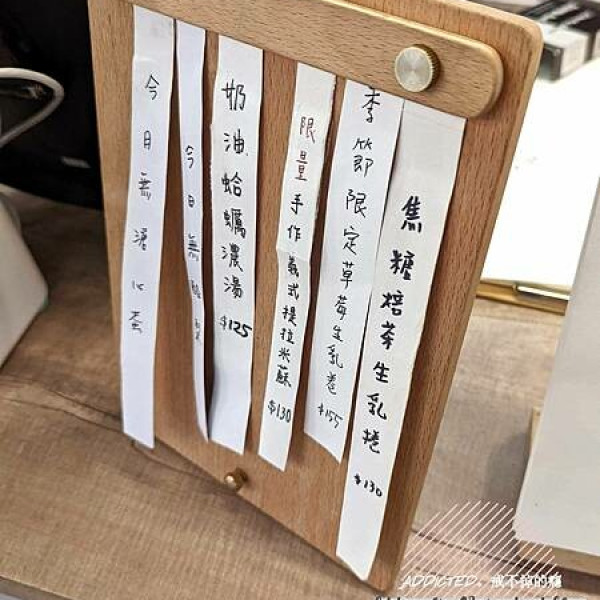 焦糖焙茶生乳捲 $130
季節限定草莓生乳卷 $155
限量手作義式提拉米蘇 $130
奶油蛤蠣濃湯 $125
今日無
今日無溏心蛋
ADDICTED、戒不掉的癮